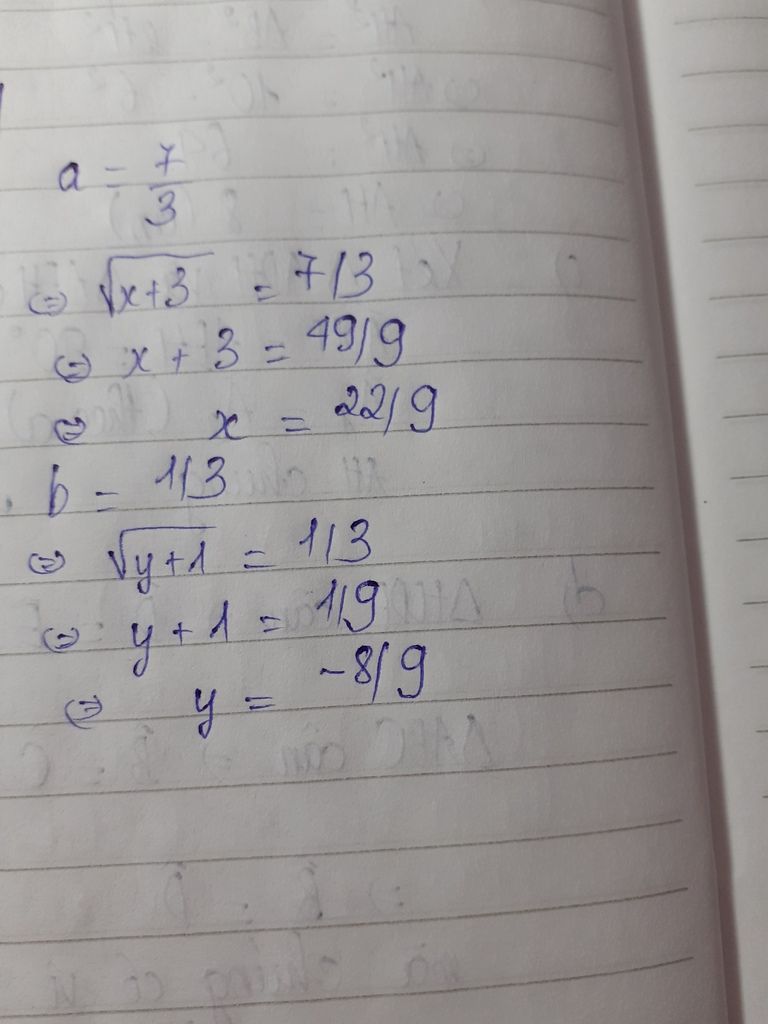 a = 7/3
⇔ √x+3 = 7/3
⇔ x + 3 = 49/9
⇔ x = 22/9
b = 1/3
⇔ √y+1 = 1/3
⇔ y + 1 = 1/9
⇔ y = -8/9